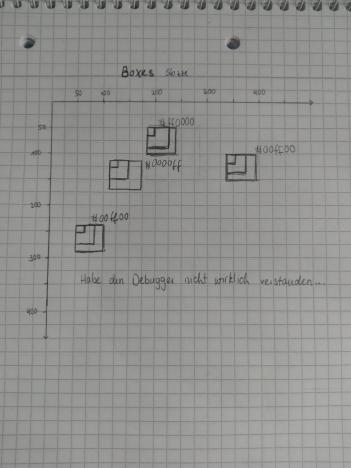 Boxes Skizze
50 100 200 300 400
50
#ff0000
100
#0000ff
#00ff00
200
#00ff00
300
Habe den Debugger nicht wirklich verstanden...
400